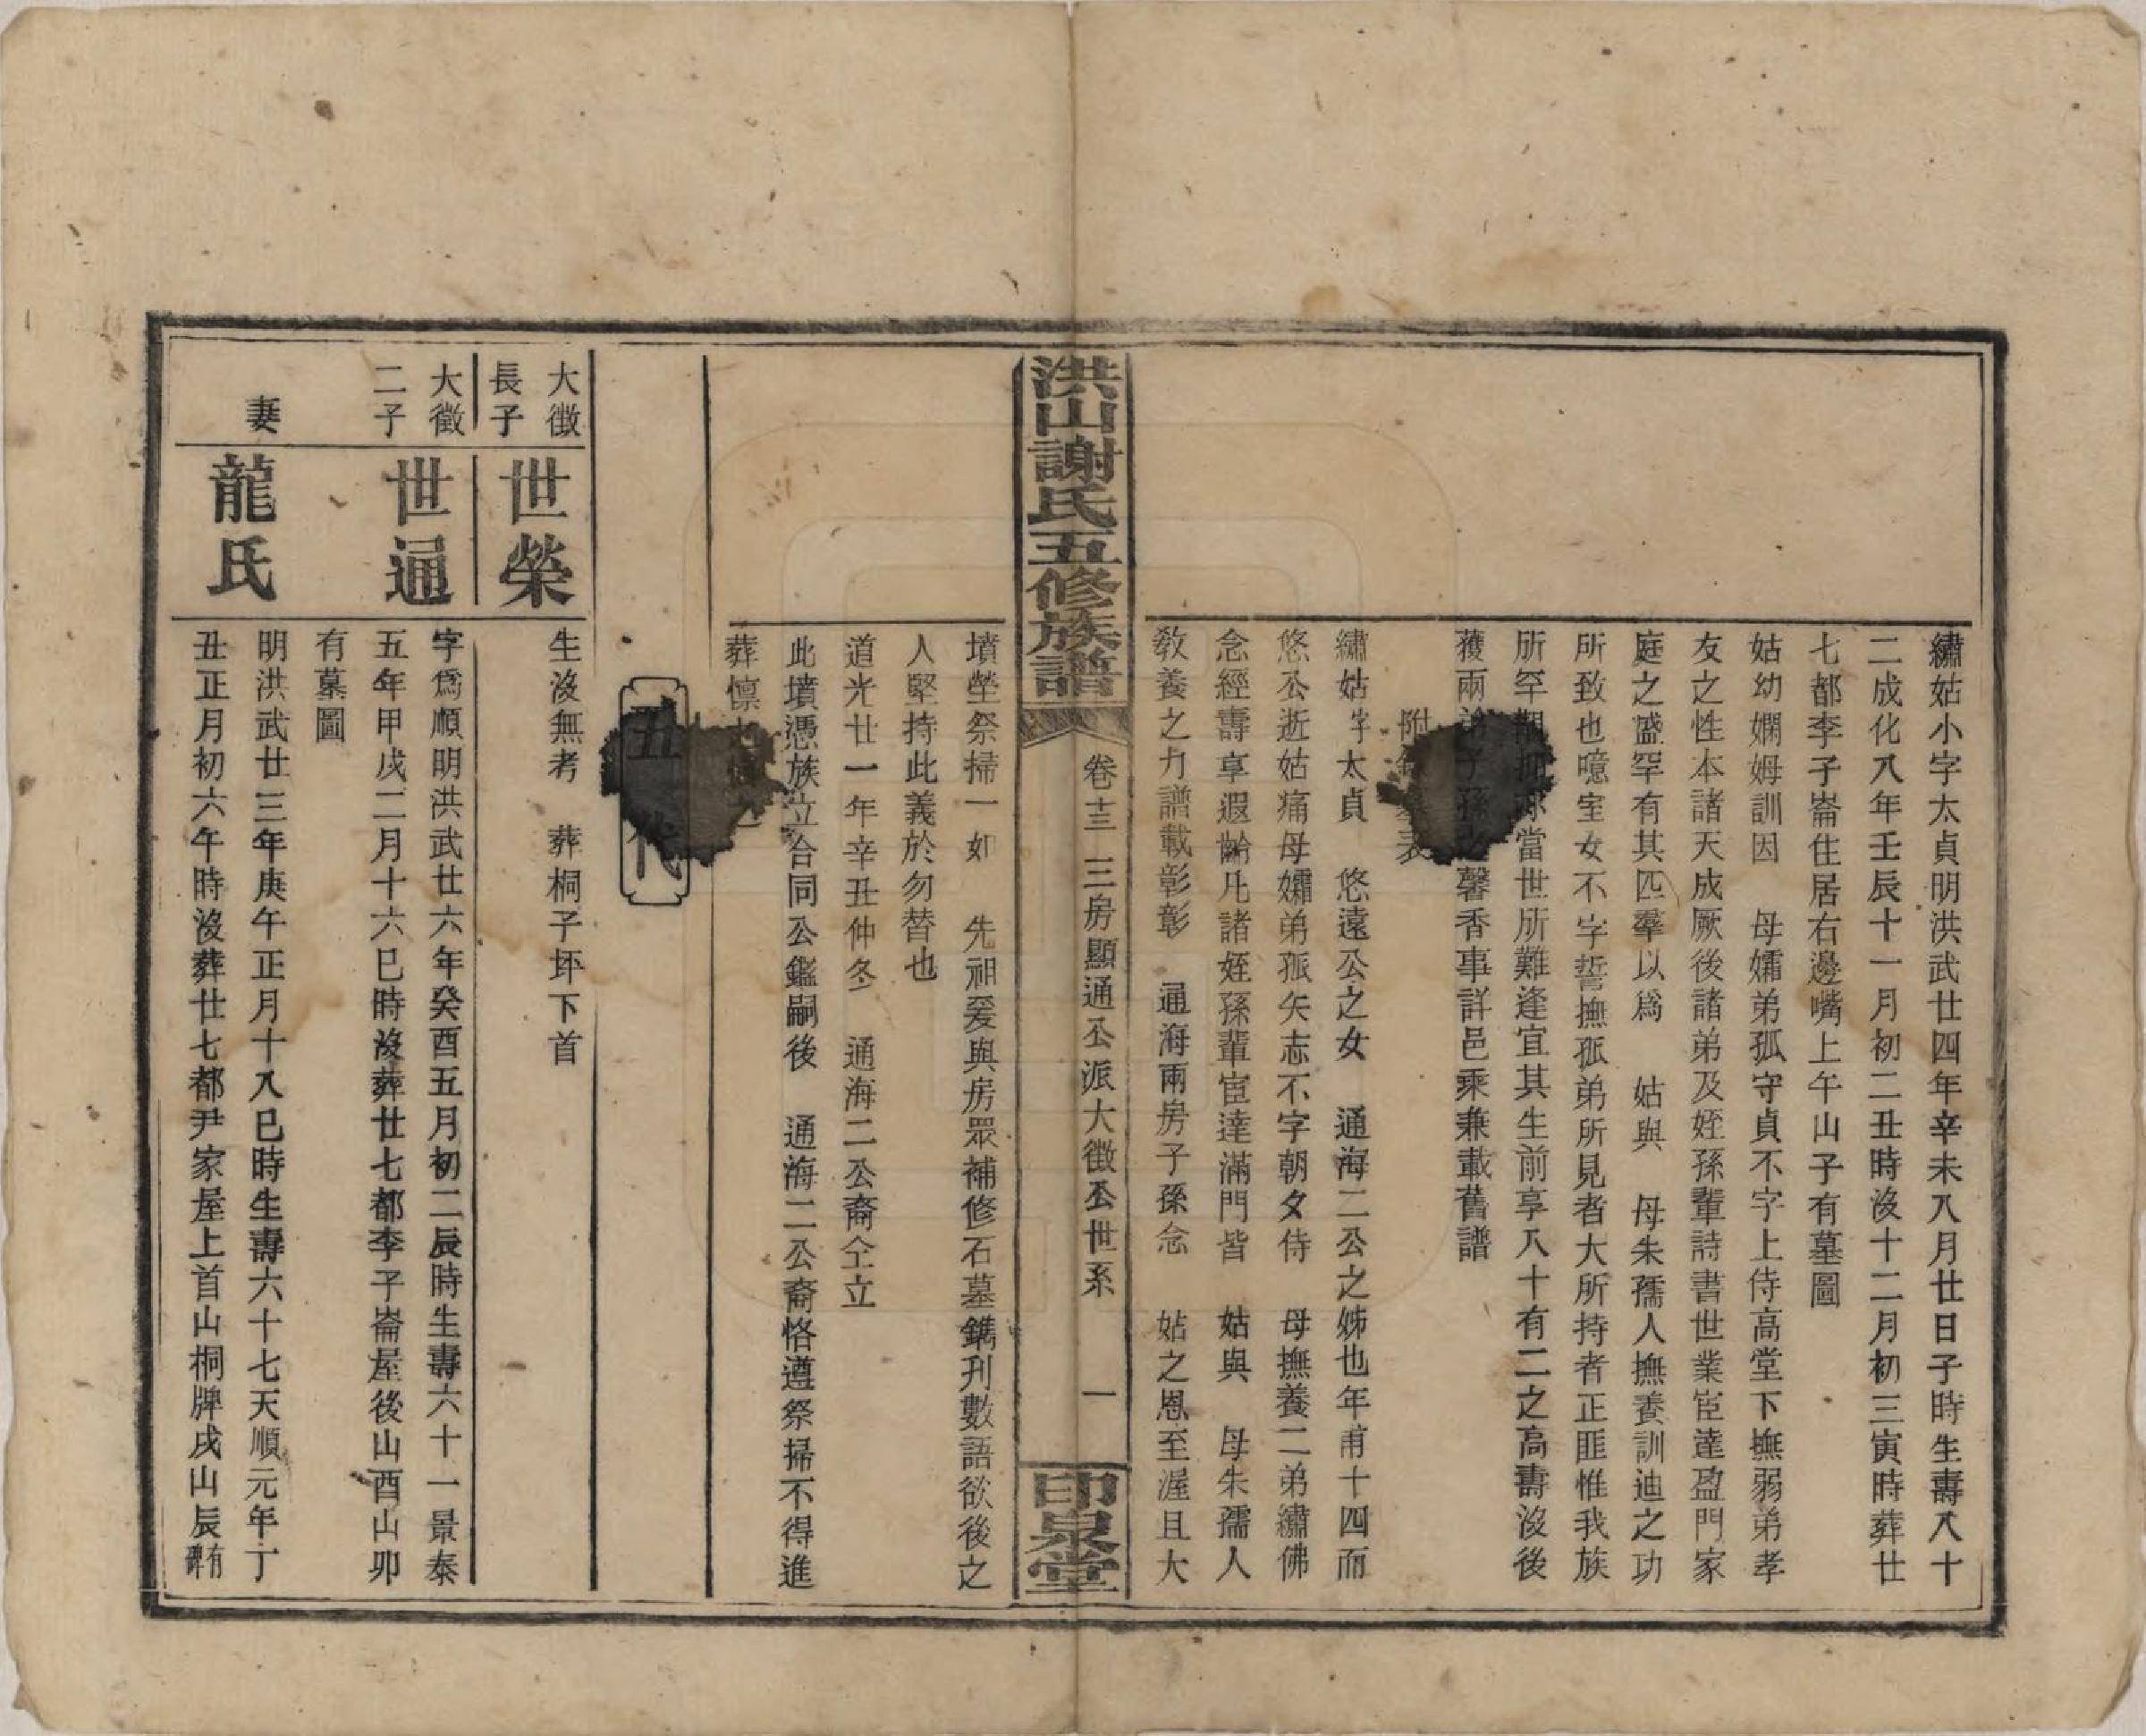 繡姑小字太貞明洪武廿四年辛未八月廿日子時生壽八十
二成化八年壬辰十一月初二丑時沒十二月初三寅時葬廿
七都李子崙住居右邊嘴上午山子有墓圖
姑幼嫻姆訓因　母孀弟孤守貞不字上侍高堂下撫弱弟孝
友之性本諸天成厥後諸弟及姪孫輩詩書世業宦達盈門家
庭之盛罕有其匹羣以爲　姑與　母朱孺人撫養訓迪之功
所致也噫室女不字誓撫孤弟所見者大所持者正匪惟我族
所罕覯抑亦當世所難逢宜其生前享八十有二之高壽沒後
獲兩子孫馨香事詳邑乘兼載舊譜
附表
繡姑字太貞　悠遠公之女　通海二公之姊也年甫十四而
悠公逝姑痛母孀弟孤矢志不字朝夕侍　母撫養二弟繡佛
念經壽享遐齡凡諸姪孫輩宦達滿門皆　姑與　母朱孺人
敎養之力譜載彰彰　通海兩房子孫念　姑之恩至渥且大
洪山謝氏五修族譜
卷十三　三房顯通公派大徵公世系　一
印泉堂
墳塋祭掃一如　先祖爰與房眾補修石墓鐫刊數語欲後之
人堅持此義於勿替也
道光廿一年辛丑仲冬　通海二公裔仝立
此墳憑族立合同公鑑嗣後　通海二公裔恪遵祭掃不得進
葬懍之
五代
大徵
長子
世榮
生沒無考　葬桐子坏下首
大徵
二子
世通
字爲順明洪武廿六年癸酉五月初二辰時生壽六十一景泰
五年甲戌二月十六巳時沒葬廿七都李子崙屋後山酉山卯
有墓圖
妻
龍氏
明洪武廿三年庚午正月十八巳時生壽六十七天順元年丁
丑正月初六午時沒葬廿七都尹家屋上首山桐牌戌山辰有碑